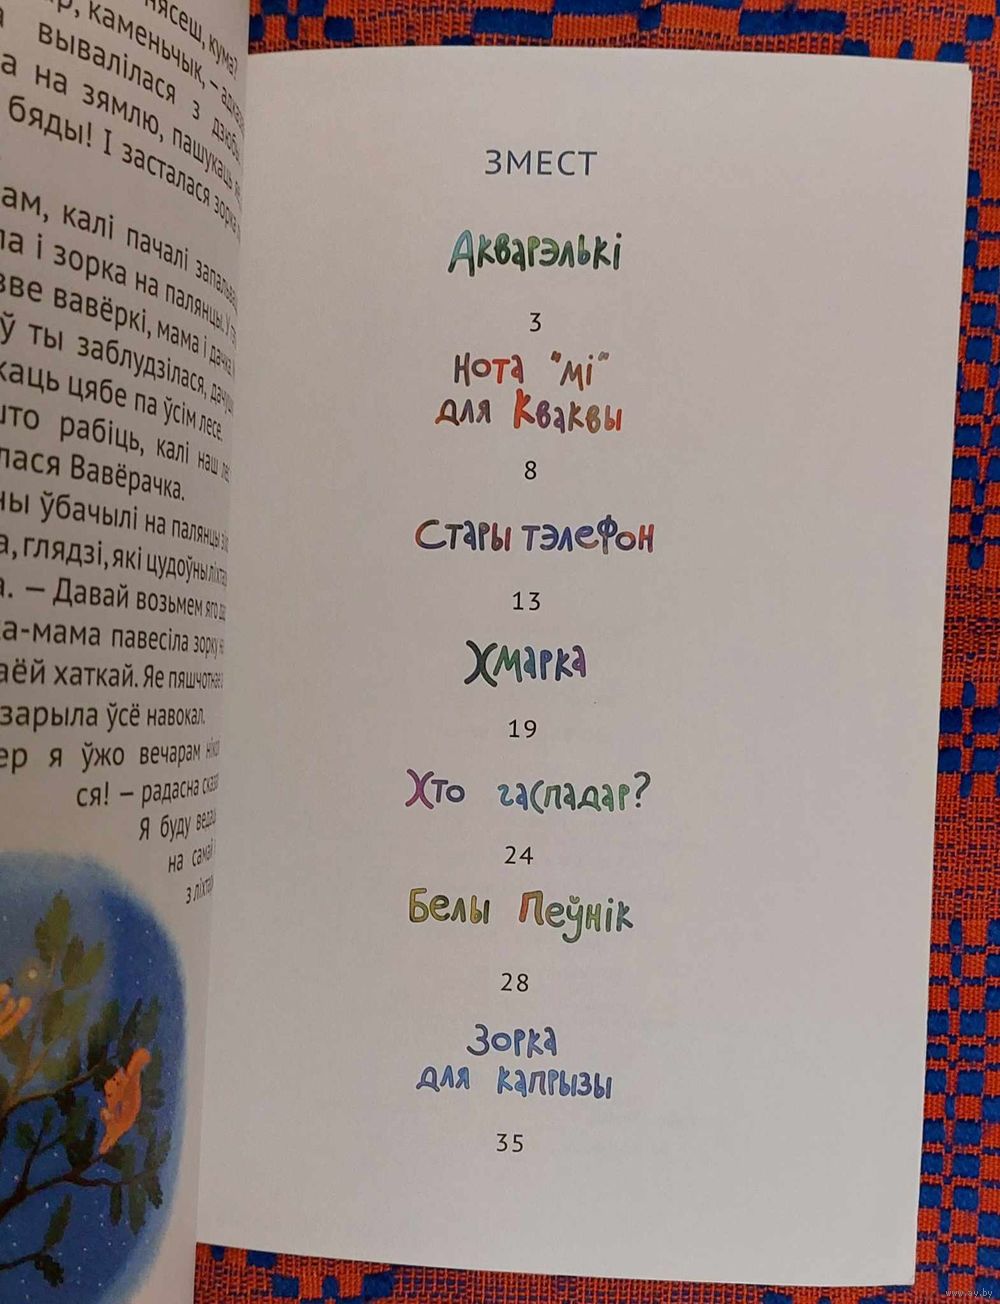 нясеш, кума?
каменьчык, –
вывалілася з дзюбы
а на зямлю, пашукаць
бяды! І засталася зорка
ам, калі пачалі
ла і зорка на палянцы. У
зве вавёркі, мама і дачка
ў ты заблудзілася,
каць цябе па ўсім лесе.
што рабіць, калі наш
лася Вавёрачка.
ны ўбачылі на палянцы
а, глядзі, які цудоўны
а. – Давай возьмем яго
ка-мама павесіла зорку
аёй хаткай. Яе
зарыла ўсё навокал.
ер я ўжо вечарам
ся! – радасна
Я буду
на самай
з
ЗМЕСТ
Акварэлькі
3
Нота "мі"
для Кваквы
8
Стары тэлефон
13
Хмарка
19
Хто гаспадар?
24
Белы Пеўнік
28
Зорка
для капрызы
35
www.ay.by